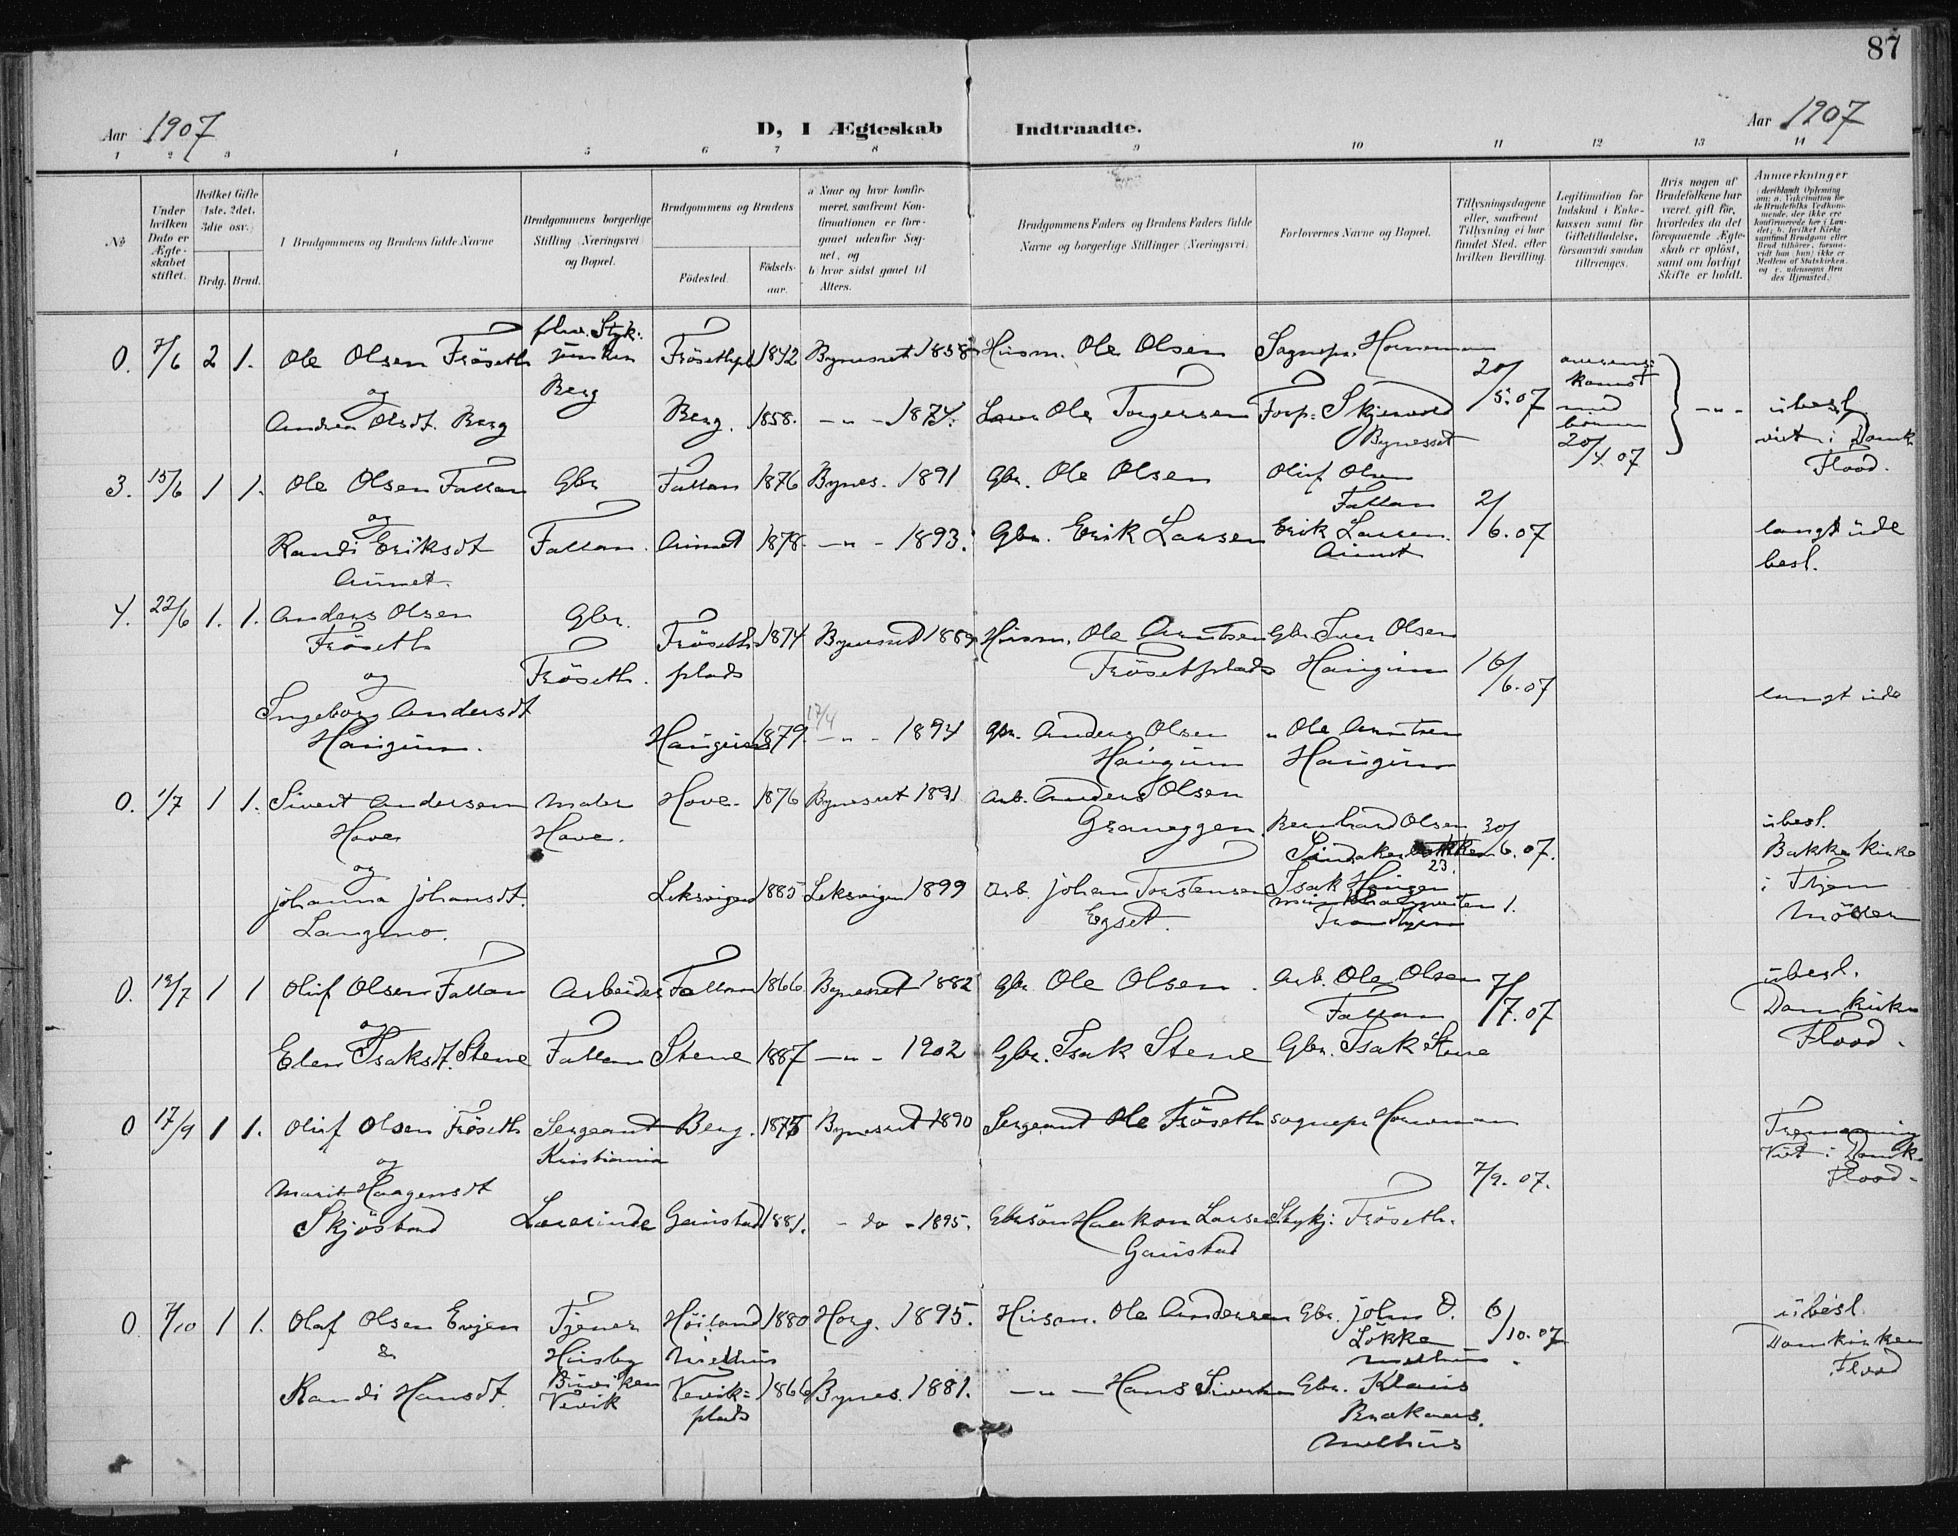 87
Aar 1907
D, I Ægteskab Indtraadte.
Aar 1907
1 2 3 4 5 6 7 8 9 10 11 12 13 14
№
Under hvilken Dato er Ægteskabet stiftet.
Hvilket Gifte (1ste, 2det, 3die osv.)
Brdg. Brud.
Brudgommens og Brudens fulde Navne
Brudgommens borgerlige Stilling (Næringsvei) og Bopæl.
Brudgommens og Brudens
Fødested.
Fødselsaar.
a Naar og hvor konfirmeret, samt om Konfirmationen er foregaaet udenfor Sognet, og
b hvor sidst gaaet til Alters.
Brudgommens Faders og Brudens Faders fulde Navne og borgerlige Stillinger (Næringsvei)
Forlovernes Navne og Bopæl.
Tillysningsdagene eller, saafremt Tillysning ei har fundet Sted, efter hvilken Bevilling.
Legitimation for Indskud i Enkekassen samt for Giftetilladelse, forsaavidt saadan tiltrænges.
Hvis nogen af Brudefolkene har været gift før, hvorledes da det foregaaende Ægteskab er opløst, samt om lovligt Skifte er holdt.
Anmerkninger
0. 7/6 2 1. Ole Olsen Fröseth Frösethpl 1842 Bynesset 1858 Husm. Ole Olsen Sognepr. Horneman 20/5. 07
og Berg
Andrea Olsdt. Berg Berg. 1858. — " — 1874. Ole Torgersen Forp. Skjervold Bynesset
med 20/4. 07 — " — übesl. viet i Domk. Flood.
3. 15/6 1 1. Ole Olsen Fallan Gbr Fallan 1876 Bynes. 1891 Gbr. Ole Olsen Oluf Olsen Fallan 2/6. 07
og
Randi Eriksdt Fallan. Aunet 1878. — " — 1893. Gbr. Erik Larsen Erik Larsen Aunet langt üde besl.
Aunet.
4. 22/6 1. 1. Anders Olsen Gbr. Fröseth 1874 Bynesset 1889 Husm. Ole Arntsen Gbr. Iver Olsen
Fröseth Fröseth. plads Frösetplads Haugum 16/6. 07
og
Ingeborg Andersdt 17/4 langt üde
Haugum. Haugum 1879. — " — 1894 Gbr. Anders Olsen " Ole Arntsen
Haugum Haugum
0. 1/7 1 1. Sivert Andersen Maler Hove. 1876 Bynesset 1891 Arb. Anders Olsen
Hove Hove. Graneggen. Bernhard Olsen 30/6. 07. übesl.
23. Bakke kirke
og i Thjem
Johanna Johansdt. Leksvigen 1885 Leksvigen 1899 Arb. Johan Torstensen Isak Haugen Möller
Langmo. Egset. Trondhjem
0. 12/7 1 1 Oluf Olsen Fallan Arbeider Fallan 1866 Bynesset 1882 Gbr. Ole Olsen. Arb. Ole Olsen 7/7. 07 übesl.
og Fallan Domkirken
Elen Isaksdt. Stene Fallan Stene 1887 — " — 1902 Gbr. Isak Stene Gbr. Isak Stene Flood.
0 17/9 1 1. Oluf Olsen Fröseth Sergeant Berg. 1875 Bynesset 1890 Sergeant Ole Fröseth sognepr Horneman
og Kristiania 7/9. 07. Viet i Domk. Flood.
Marit Haagensdt
Skjöstad Lærerinde Gaustad 1881. — do — 1895. Gbrsön Haakon Larsen Stykj: Fröseth.
Gaustad
0. 7/10 1 1. Olaf Olsen Enjen Tjener Höiland 1880 Horg. 1895. Husm. Ole Andersen Gbr. John O. 6/10. 07 übesl.
& Husby i Melhus Lökke Domkirken
Büviken Melhus. Flood
Randi Hansdt. Vevik Vevik= 1866 Bynes. 1881. — " — Hans Sivertsen Gbr. Klaus
plads
Melhus